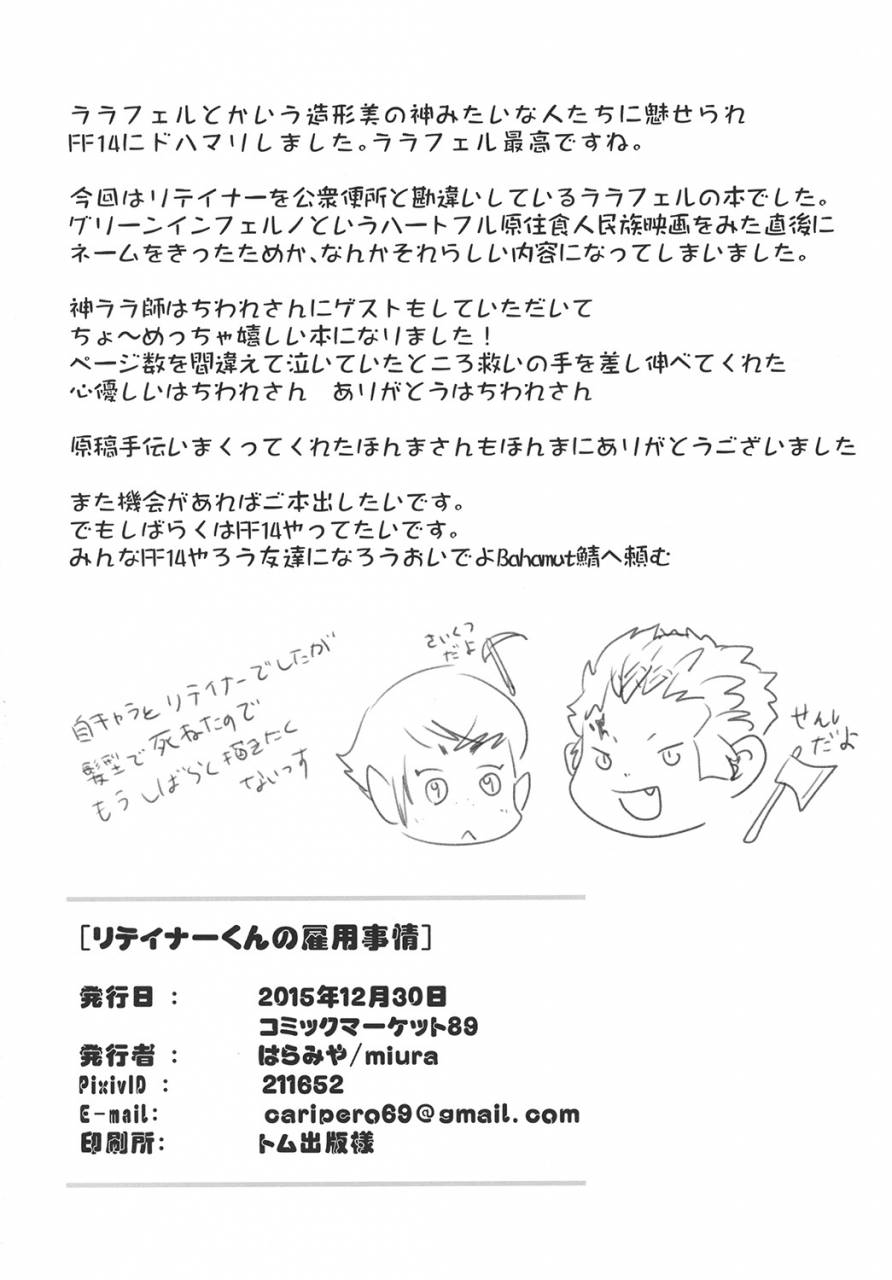 ララフェルとかいう造形美の神みたいな人たちに魅せられ
FF14にドハマりしました。ララフェル最高ですね。
今回はリテイナーを公衆便所と勘違いしているララフェルの本でした。
グリーンインフェルノというハートフル原住食人民族映画をみた直後に
ネームをきったためか、なんかそれらしい内容になってしまいました。
神ララ師はちわれさんにゲストもしていただいて
ちょ〜めっちゃ嬉しい本になりました!
ページ数を間違えて泣いていたところ救いの手を差し伸べてくれた
心優しいはちわれさん　ありがとうはちわれさん
原稿手伝いまくってくれたほんまさんもほんまにありがとうございました
また機会があればご本出したいです。
でもしばらくはFF14やってたいです。
みんなFF14やろう友達になろうおいでよBahamut鯖へ頼む
自キャラとリテイナーでしたが
髪型で死ねたので
もうしばらく描きたく
ないっす
さいくつ
だよ
せんし
だよ
[リテイナーくんの雇用事情]
発行日 : 2015年12月30日
コミックマーケット89
発行者 : はらみや/miura
PixivID : 211652
E-mail: caripero69@gmail.com
印刷所: トム出版様